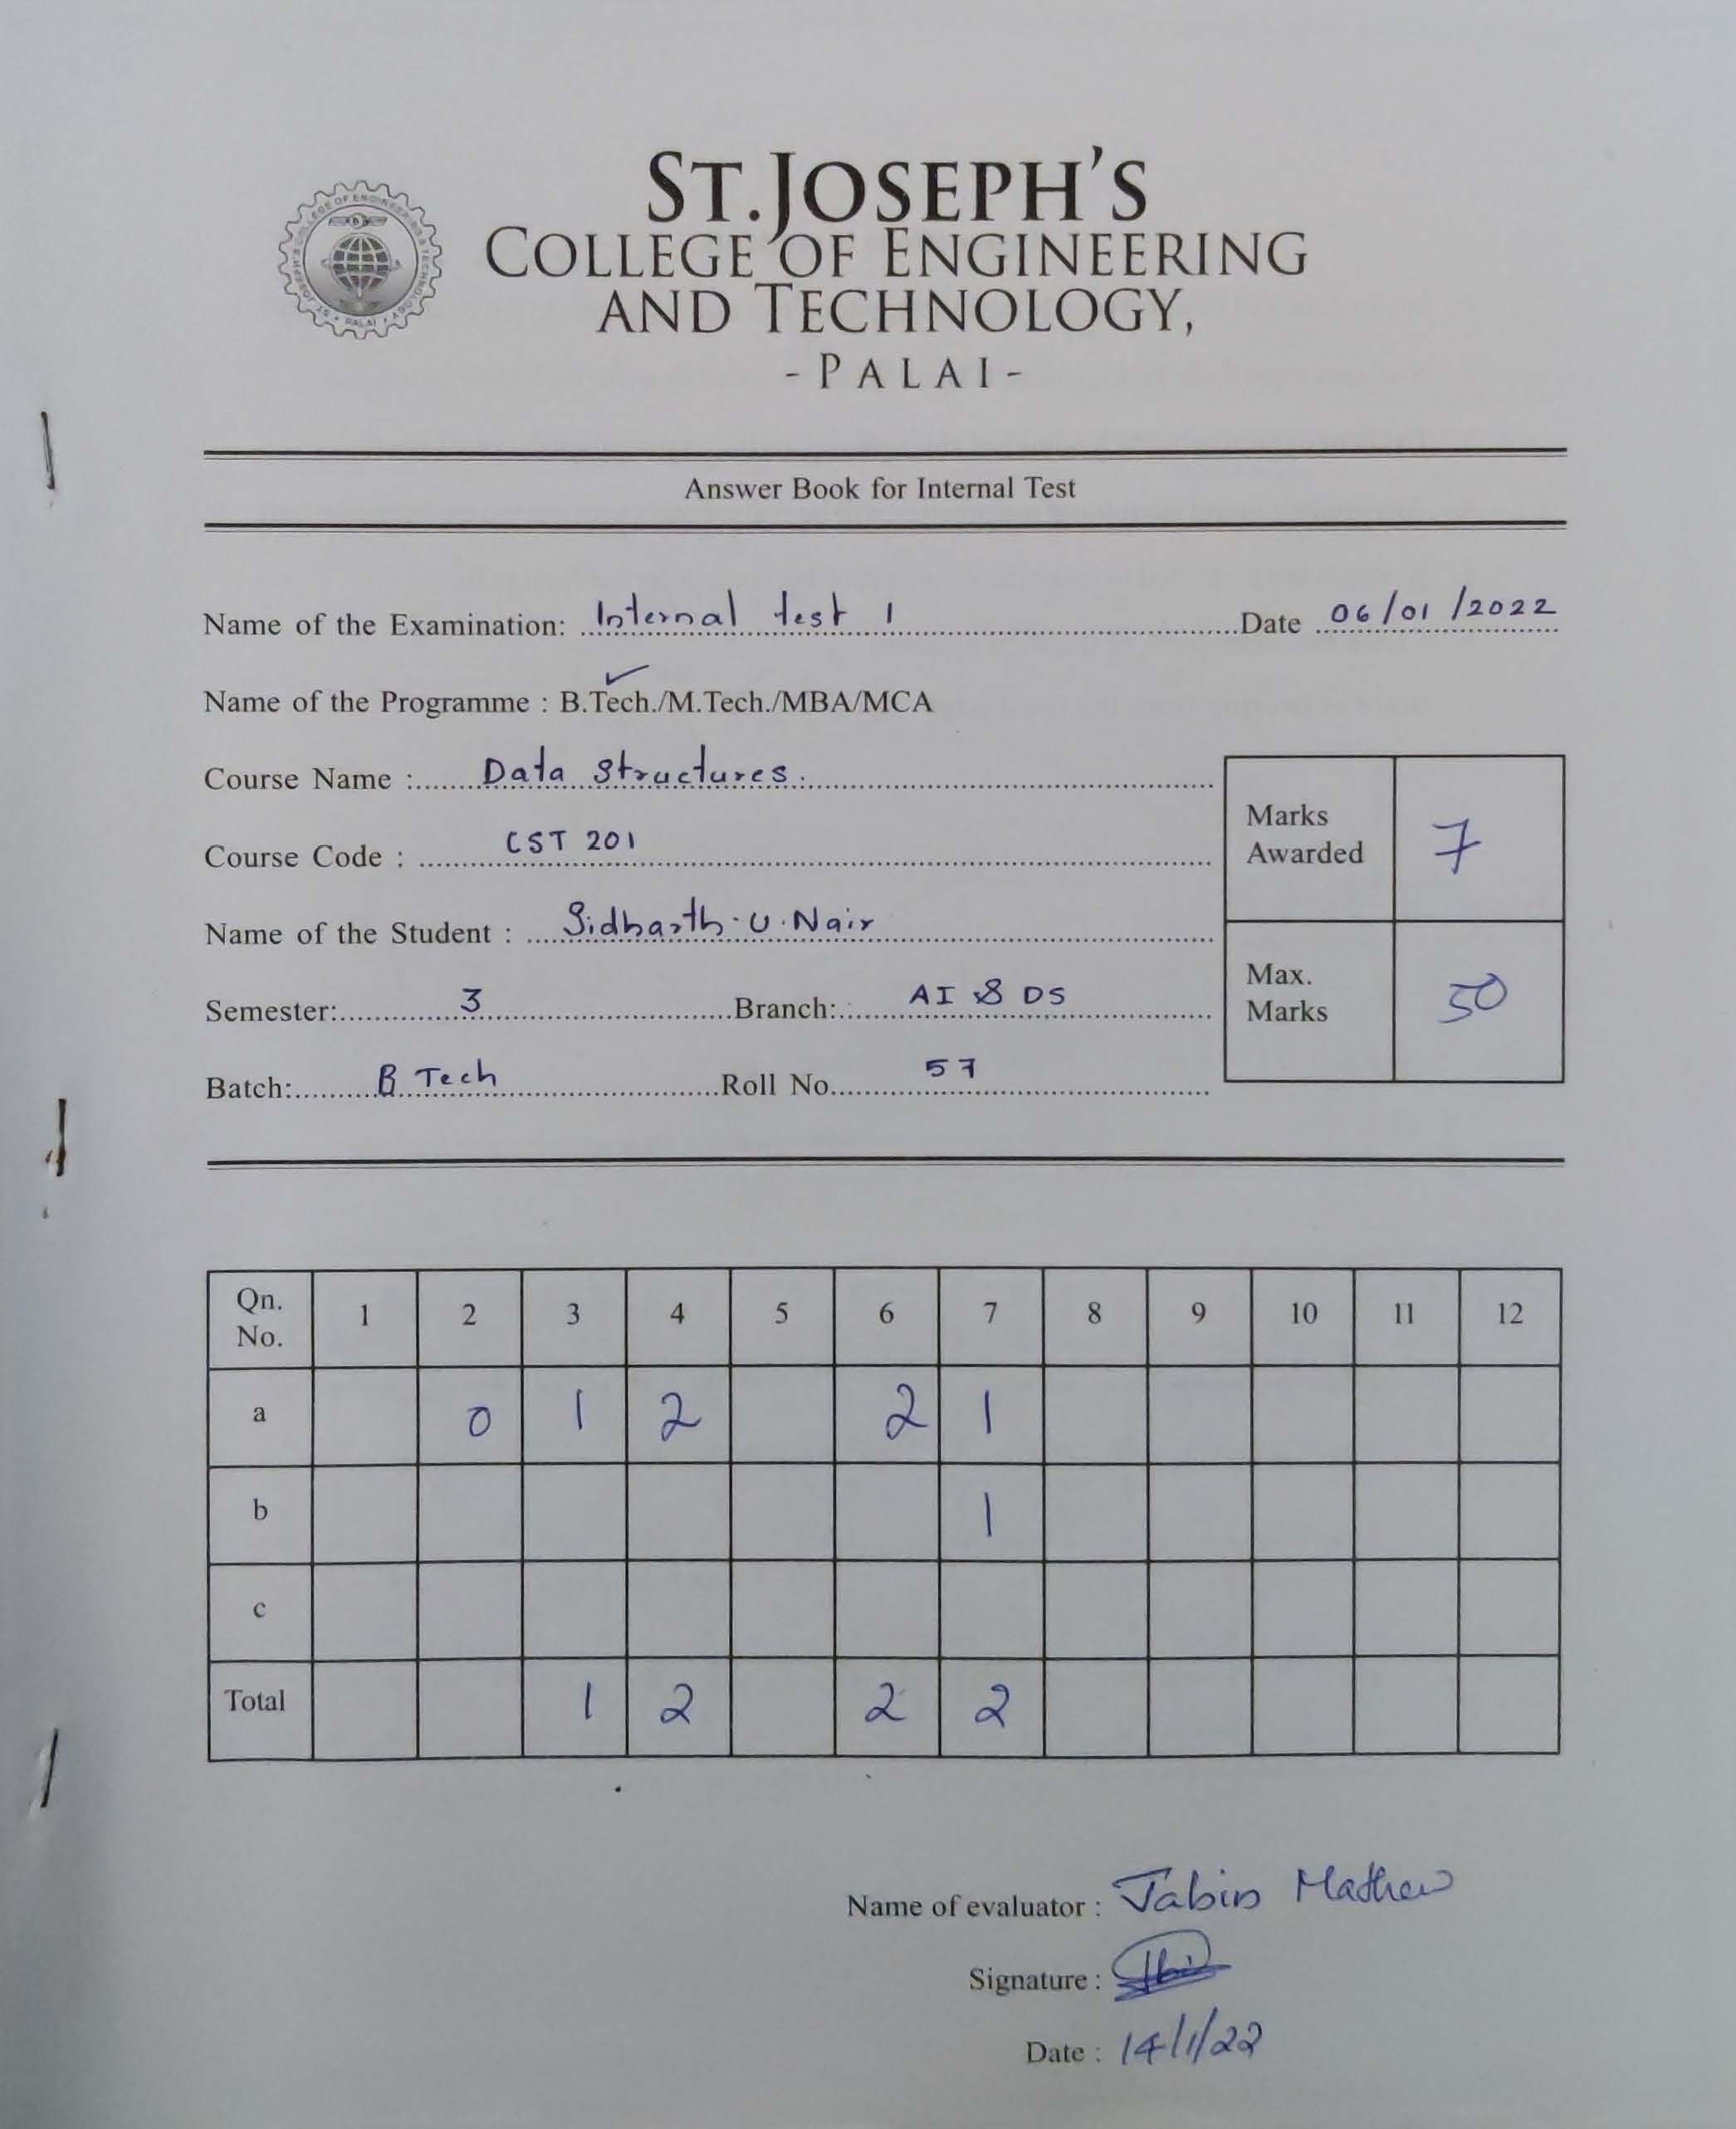 ST.JOSEPH'S
COLLEGE OF ENGINEERING
AND TECHNOLOGY,
- PALAI -
Answer Book for Internal Test
Name of the Examination: Internal test 1 Date 06/01/2022
Name of the Programme : B.Tech./M.Tech./MBA/MCA
Course Name : Data Structures.
Course Code : CST 201
Name of the Student : Sidharth.U.Nair
Semester: 3 Branch: AI & DS
Batch: B Tech Roll No. 57
Marks Awarded 7
Max. Marks 50
Qn. No. 1 2 3 4 5 6 7 8 9 10 11 12
a 0 1 2 2 1
b 1
c
Total 1 2 2 2
Name of evaluator : Jabin Mathew
Signature :
Date : 14/1/22